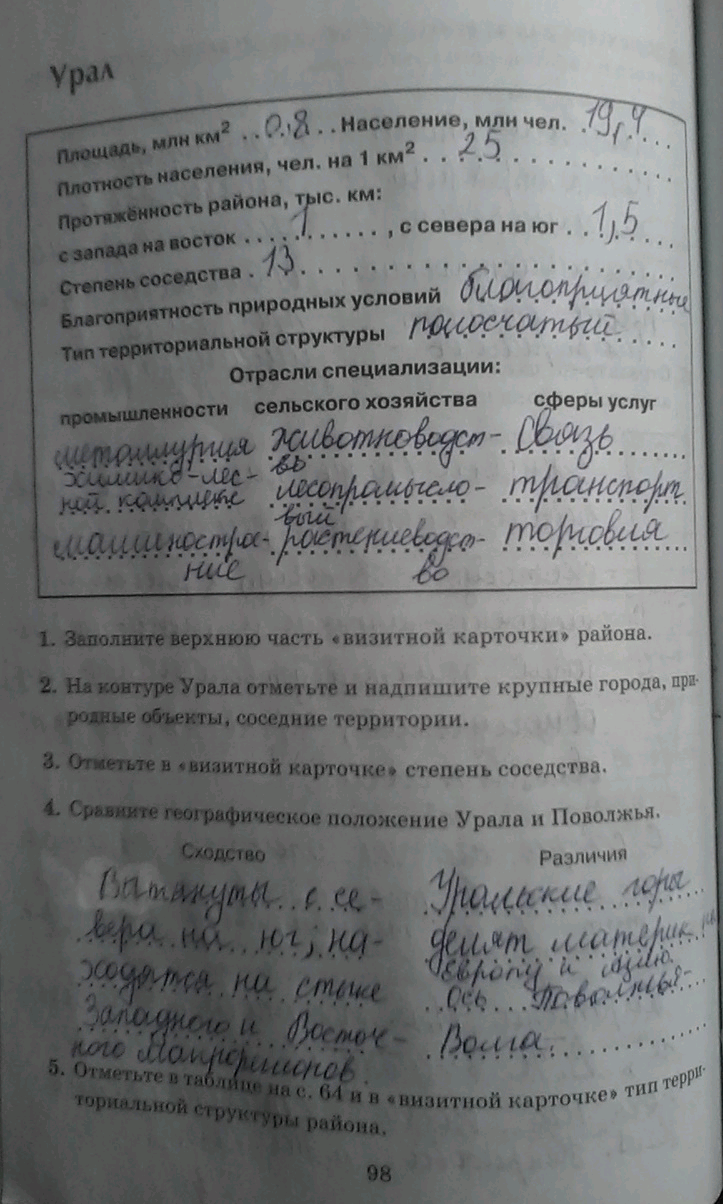 Урал
Площадь, млн км² . . 0,8 . . Население, млн чел. . 19,4 . .
Плотность населения, чел. на 1 км² . . 25 . . . . . . . . . . .
Протяжённость района, тыс. км:
с запада на восток . . . . 1 . . . . . . , с севера на юг . . 1,5 . . .
Степень соседства . 13 . . . . . . . . . . . . . . . . . . .
Благоприятность природных условий благоприятные
Тип территориальной структуры полосчатый . . . .
Отрасли специализации:
промышленности сельского хозяйства сферы услуг
металлургия животноводст- связь
химико-лес- во
ной комплекс лесопромысло- транспорт
вый
машинострое- растениеводст- торговля
ние во
1. Заполните верхнюю часть «визитной карточки» района.
2. На контуре Урала отметьте и надпишите крупные города, при-
родные объекты, соседние территории.
3. Отметьте в «визитной карточке» степень соседства.
4. Сравните географическое положение Урала и Поволжья.
Сходство Различия
Вытянуты с се- Уральские горы
вера на юг; на- делят материк на
Европу и Азию
ходятся на стыке ось Поволжья-
Западного и Восточ- Волга.
ного Макрорегионов.
5. Отметьте в таблице на с. 64 и в «визитной карточке» тип терри-
ториальной структуры района.
98